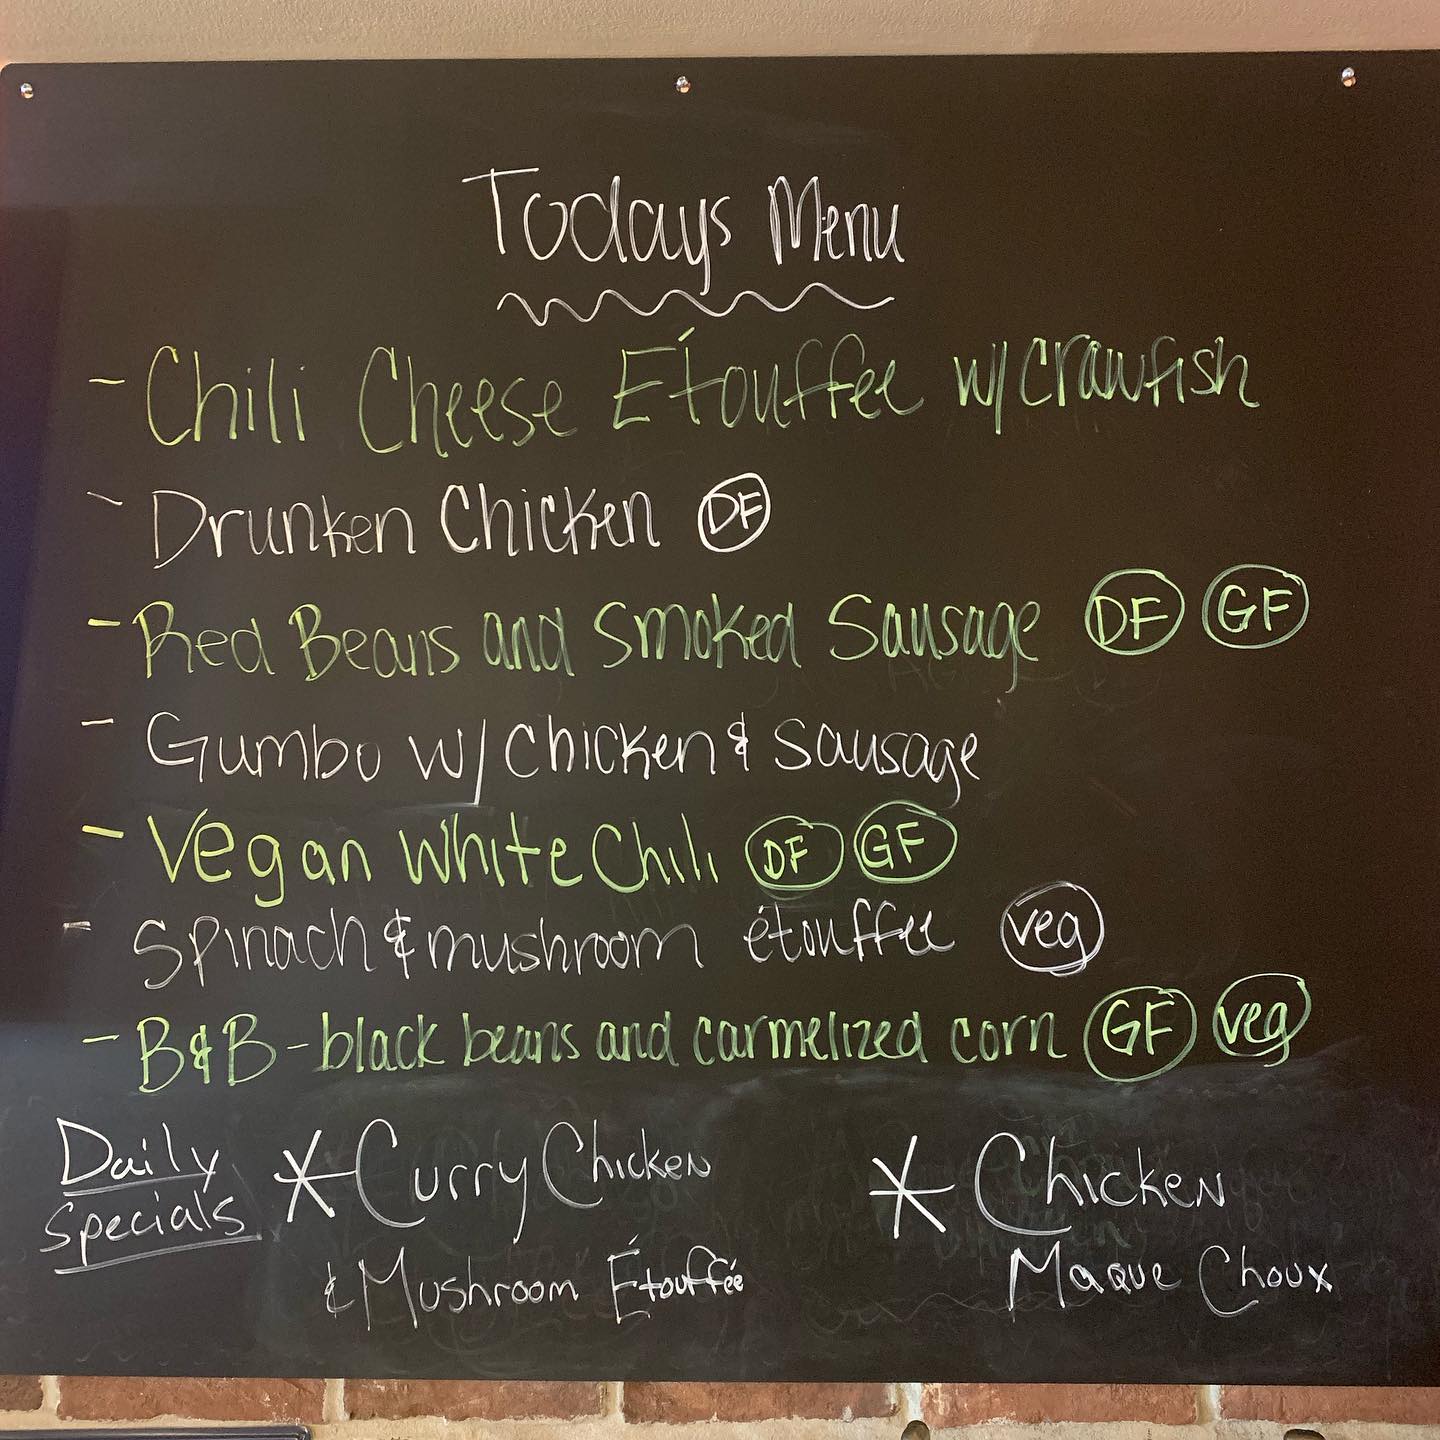 Todays Menu
- Chili Cheese Étouffee w/ crawfish
- Drunken Chicken DF
- Red Beans and Smoked Sausage DF GF
- Gumbo w/ chicken & sausage
- Vegan White Chili DF GF
- Spinach & mushroom étouffee veg
- B&B - black beans and carmelized corn GF veg
Daily Specials
* Curry Chicken
& Mushroom Étouffée
* Chicken
Maque Choux